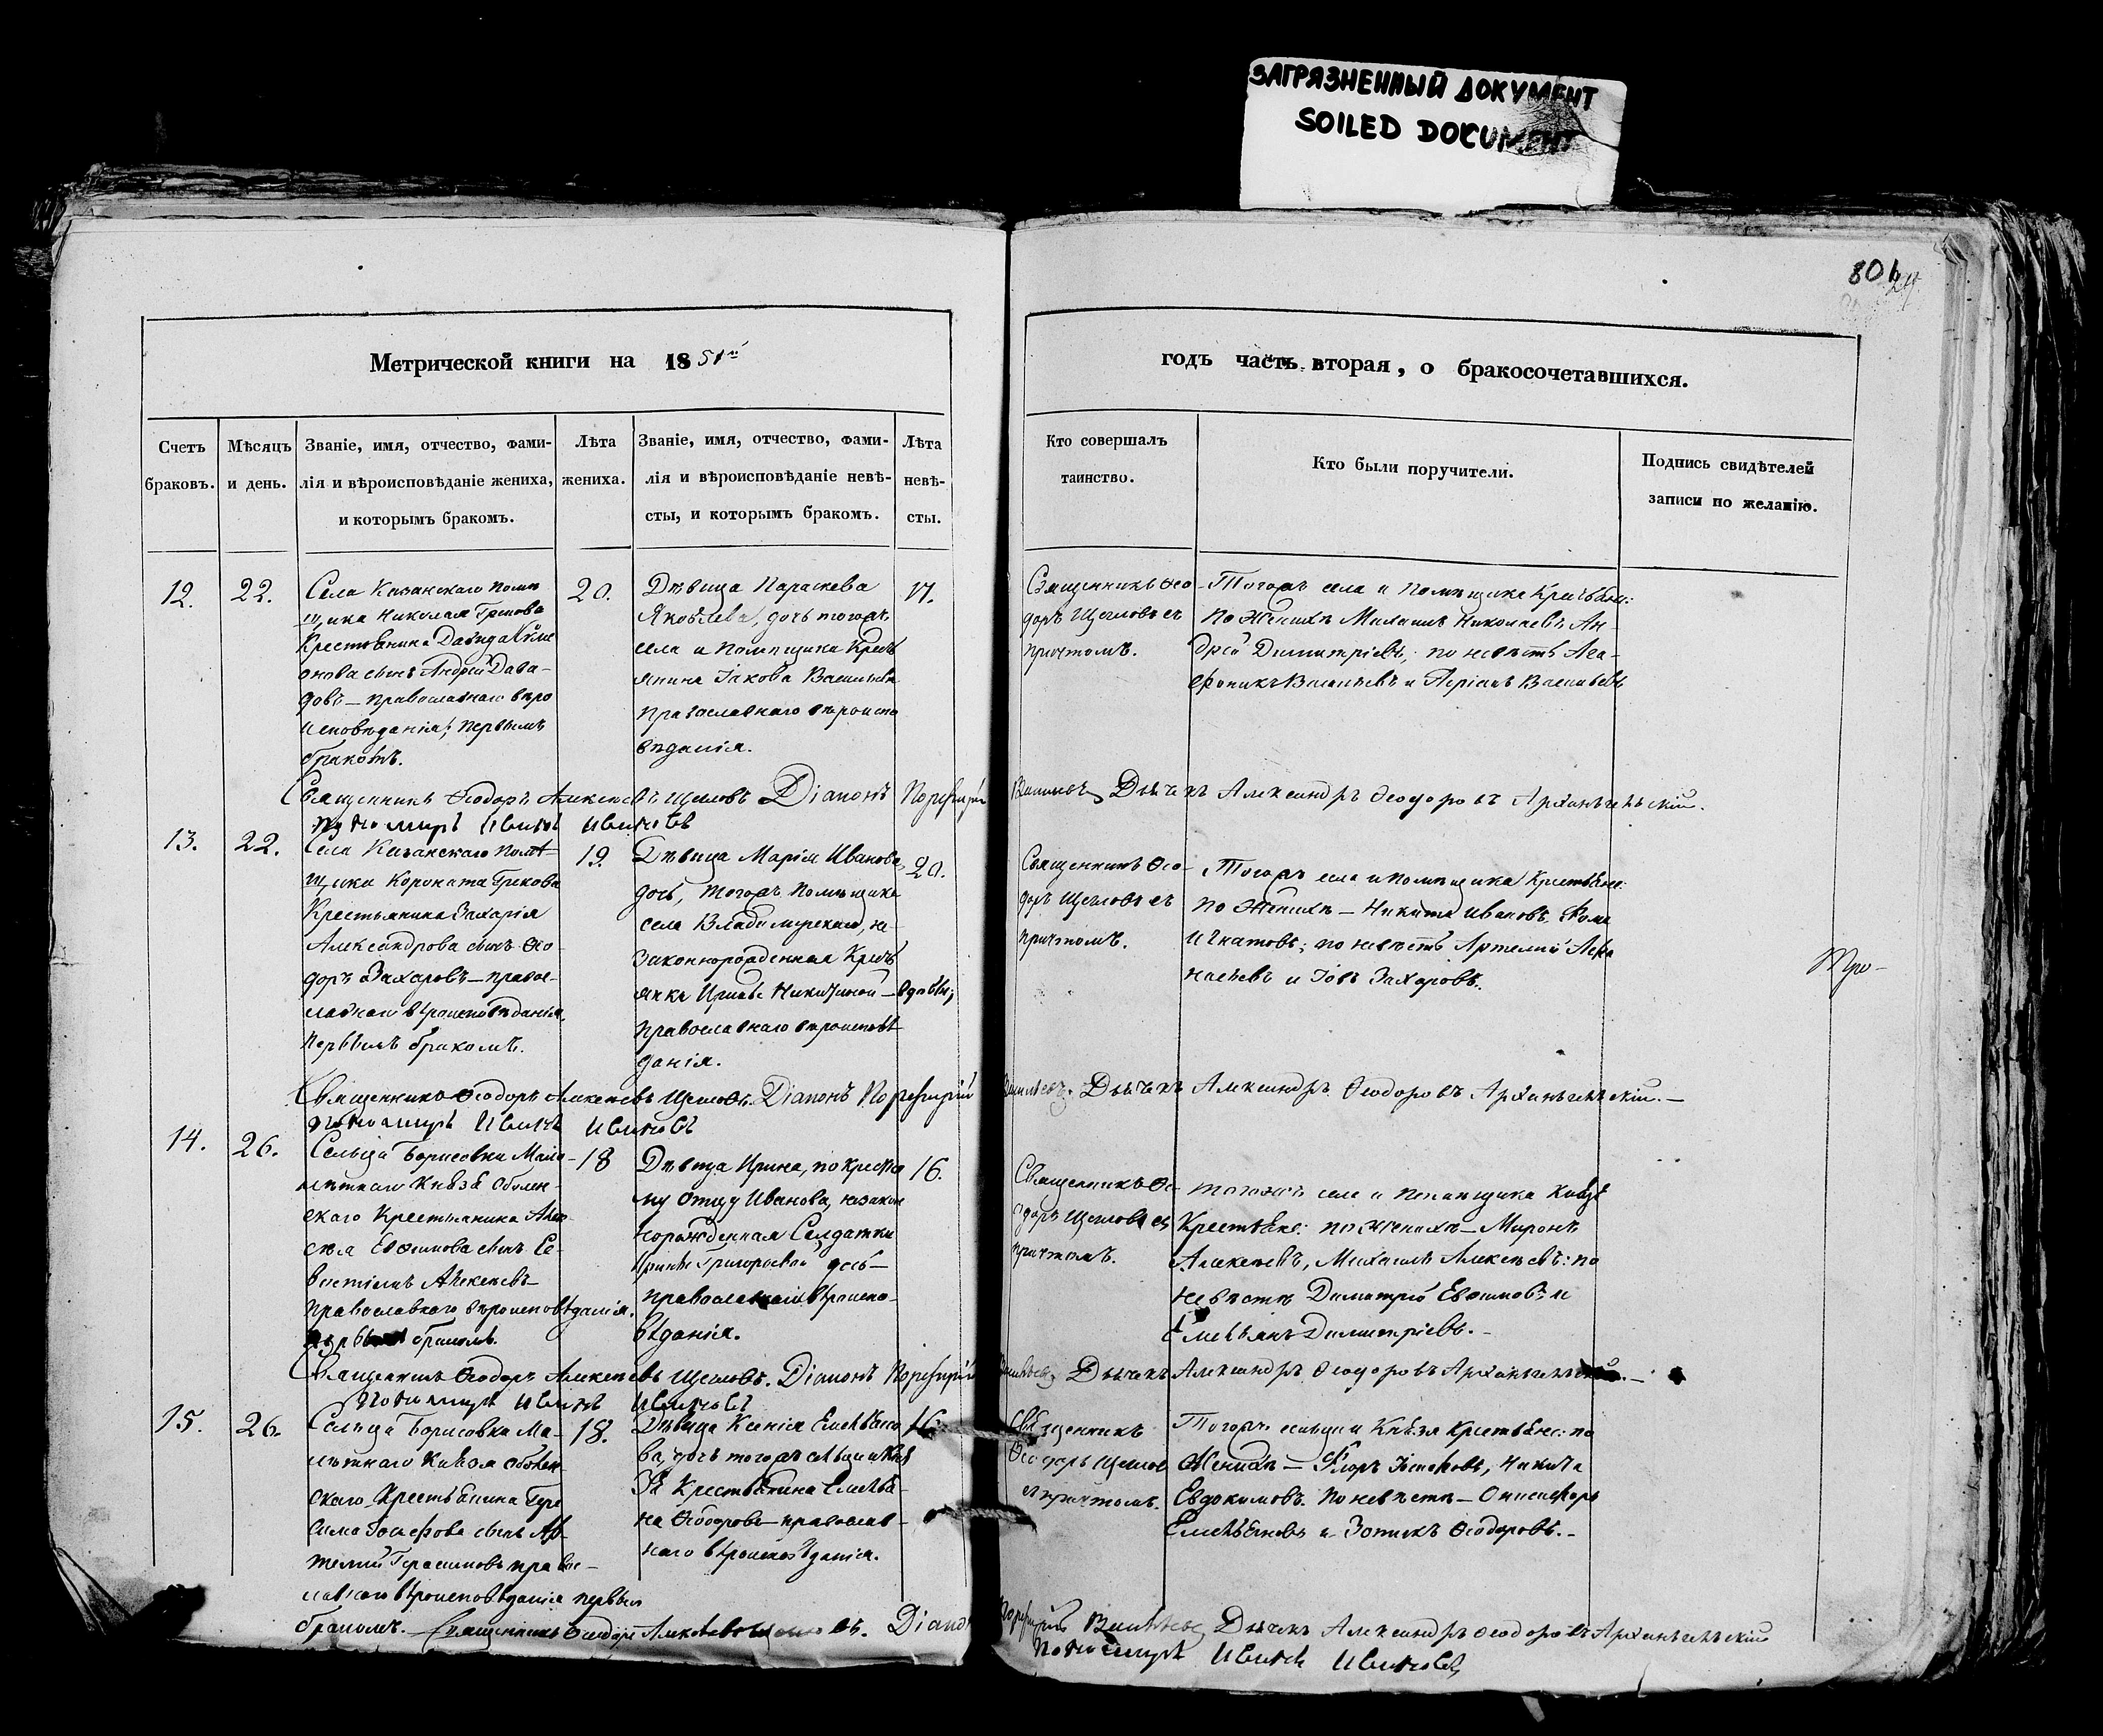 ЗАГРЯЗНЕННЫЙ ДОКУМЕНТ
SOILED DOCUMENT
801
Метрической книги на 1851й
годъ часть вторая, о бракосочетавшихся.
Счетъ
браковъ.
Мѣсяцъ
и день.
Званіе, имя, отчество, фами-
лія и вѣроисповѣданіе жениха,
и которымъ бракомъ.
Лѣта
жениха.
Званіе, имя, отчество, фами-
лія и вѣроисповѣданіе невѣ-
сты, и которымъ бракомъ.
Лѣта
невѣ-
сты.
Кто совершалъ
таинство.
Кто были поручители.
Подпись свидѣтелей
записи по желанію.
12.
22.
Села Казанскаго помѣ
щика Николая Грекова
Крестьянина Давида
сынъ Андрей Давы-
довъ – православнаго вѣро
исповѣданія; первымъ
бракомъ.
20.
Дѣвица Параскева
Яковлева, дочь тогожъ
села и помѣщика Крест
янина Іакова Васильева
православнаго вѣроиспо
вѣданія.
17.
Священникъ Ѳео
доръ Щегловъ съ
причтомъ.
Тогожъ села и помѣщика Крестьяне:
по женихѣ Михаилъ Николаевъ, Ан-
дрей Димитріевъ; по невѣстѣ Ага-
фоникъ Васильевъ и Адріанъ Васильевъ
Священникъ Ѳеодоръ Алексѣевъ Щегловъ Діаконъ Порфирій Васильевъ Дьячекъ Александръ Ѳеодоровъ Архангельскій.
Пономарь Иванъ Ивановъ
13.
22.
Села Казанскаго помѣ-
щика Короната Грекова
Крестьянина Захарія
Александрова сынъ Ѳео-
доръ Захаровъ – правос-
лавнаго вѣроисповѣданія,
первымъ бракомъ.
19.
Дѣвица Марія Иванова,
дочь, тогожъ помѣщика
села Владимірскаго, не-
законнорожденная Крест
янки Ирины Никитиной – вдовы;
православнаго вѣроисповѣ-
данія.
20.
Священникъ Ѳео-
доръ Щегловъ съ
причтомъ.
Тогожъ села и помѣщика Крестьяне:
по женихѣ – Никита Ивановъ, Фома
Игнатовъ; по невѣстѣ Артемій Афа
насьевъ и Іовъ Захаровъ.
Священникъ Ѳеодоръ Алексѣевъ Щегловъ. Діаконъ Порфирій Васильевъ. Дьячекъ Александръ Ѳеодоровъ Архангельскій. –
Пономарь Иванъ Ивановъ
14.
26.
Сельца Борисовки Мало-
лѣтнаго Князя Оболен-
скаго Крестьянина Алек
сѣя Евѳимова сынъ Се-
вастіанъ Алексѣевъ –
православнаго вѣроисповѣданія.
бракомъ.
18
Дѣвица Ирина, по крестно
му отцу Иванова, незакон
норожденная Солдатки
Ирины Григорьевой дочь –
православнаго вѣроиспо-
вѣданія.
16.
Священникъ Ѳе-
одоръ Щегловъ съ
причтомъ.
Тогожъ села и помѣщика Князя
Крестьяне: по женихѣ – Миронъ
Алексѣевъ, Михаилъ Алексѣевъ: по
невѣстѣ Димитрій Евѳимовъ и
Емельянъ Димитріевъ. –
Священникъ Ѳеодоръ Алексѣевъ Щегловъ. Діаконъ Порфирій Васильевъ Дьячекъ Александръ Ѳеодоровъ Архангельскій. –
Пономарь Иванъ Ивановъ
15.
26.
Сельца Борисовки Ма-
лѣтнаго Князя Оболен-
скаго Крестьянина Гера
сима Іосифова сынъ Ар-
темій Герасимовъ правос-
лавнаго вѣроисповѣданія первымъ
бракомъ. –
18.
Дѣвица Ксенія Емельяно
ва, дочь тогожъ сельца и Кня
зя Крестьянина Емелья-
на Ѳеодорова – православ-
наго вѣроисповѣданія.
16.
Священникъ
Ѳеодоръ Щеглов
съ причтомъ.
Тогожъ сельца и Князя Крестьяне: по
женихѣ – Флоръ Іосифовъ, Никита
Евдокимовъ. по невѣстѣ – Онисифоръ
Емельяновъ и Зотикъ Ѳеодоровъ. –
Священникъ Ѳеодоръ Алексѣевъ Щегловъ. Діаконъ Порфирій Васильевъ Дьячекъ Александръ Ѳеодоровъ Архангельскій
Пономарь Иванъ Ивановъ